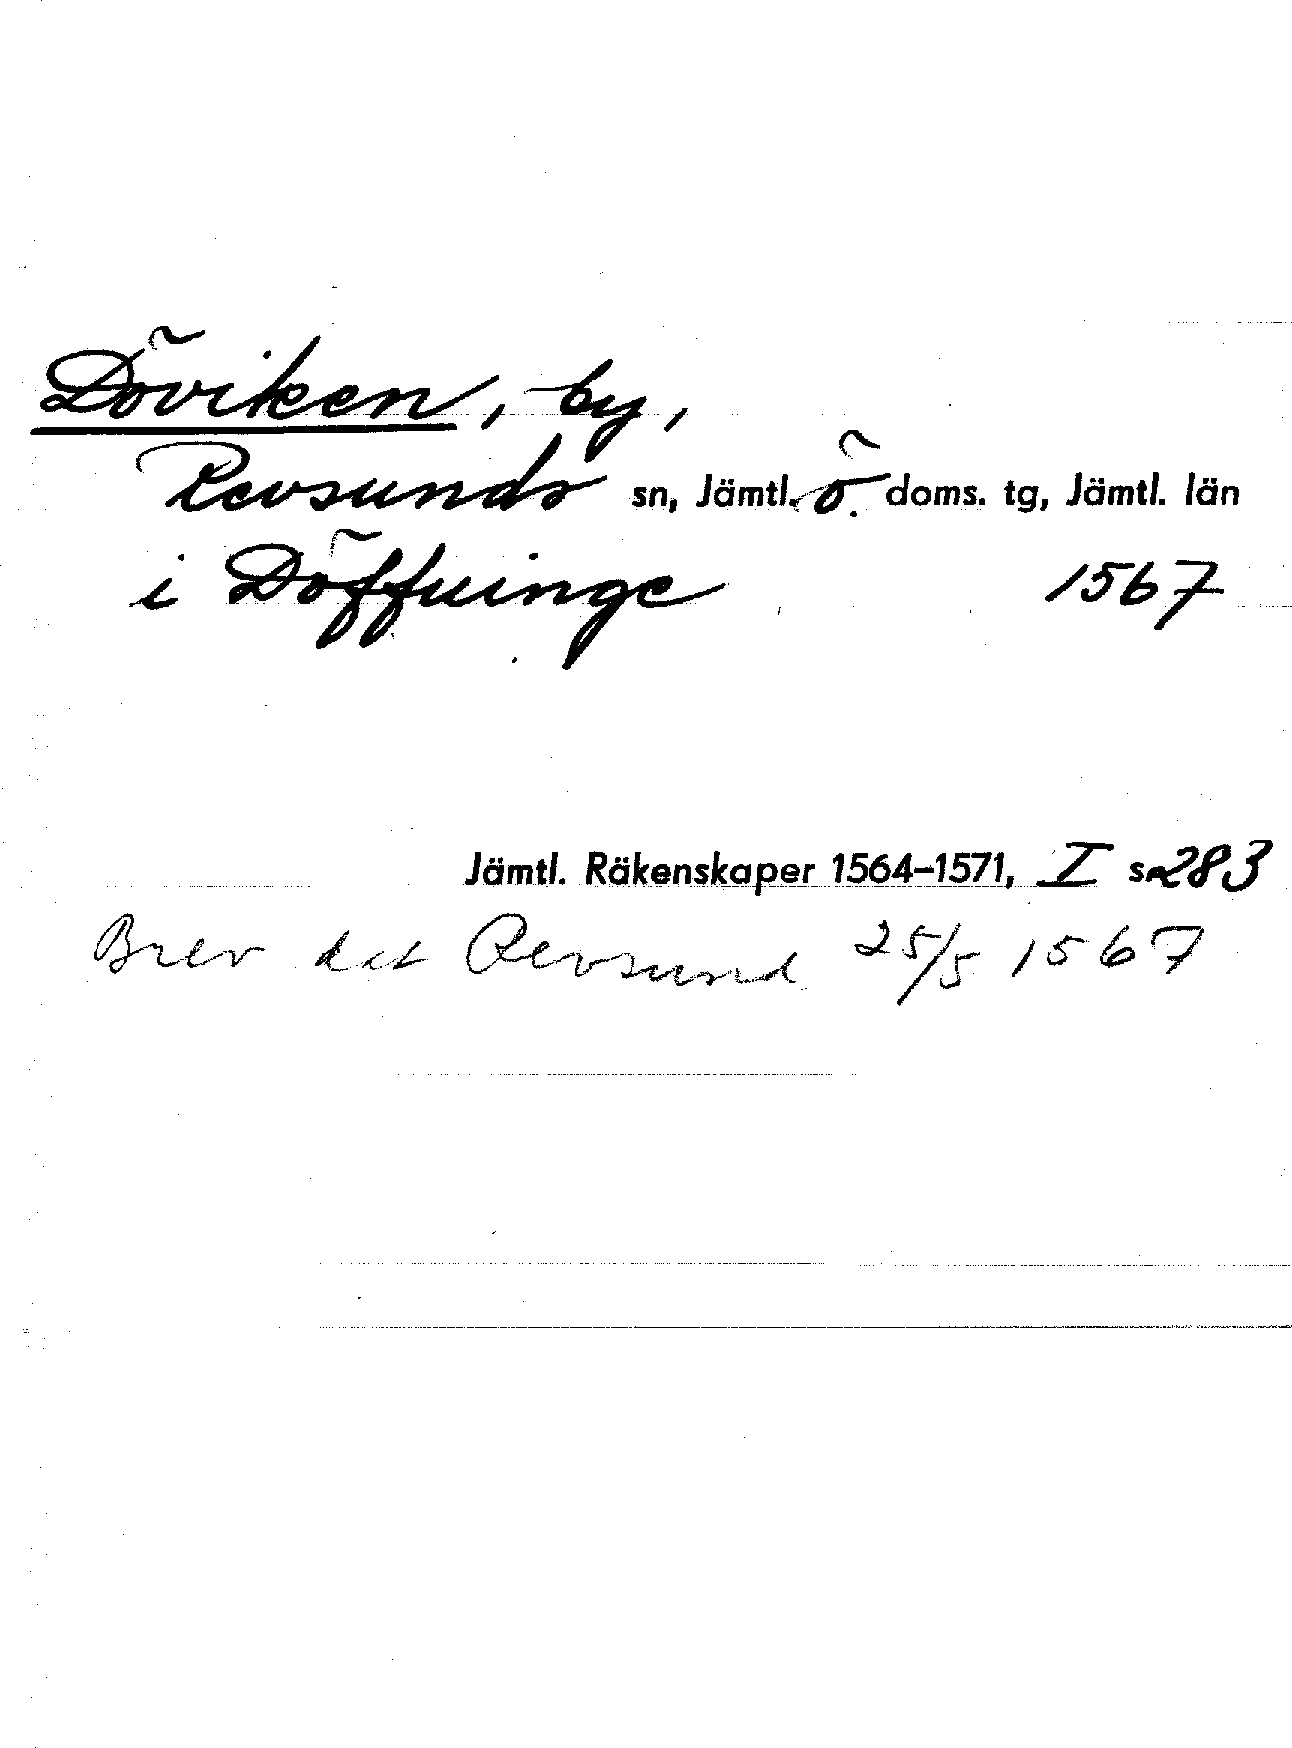 Döviken, by,
Revsunds sn, Jämtl. ö. doms. tg, Jämtl. län
i Döffuinge 1567
Jämtl. Räkenskaper 1564–1571, I s. 283
Brev dat Revsund 25/5 1567